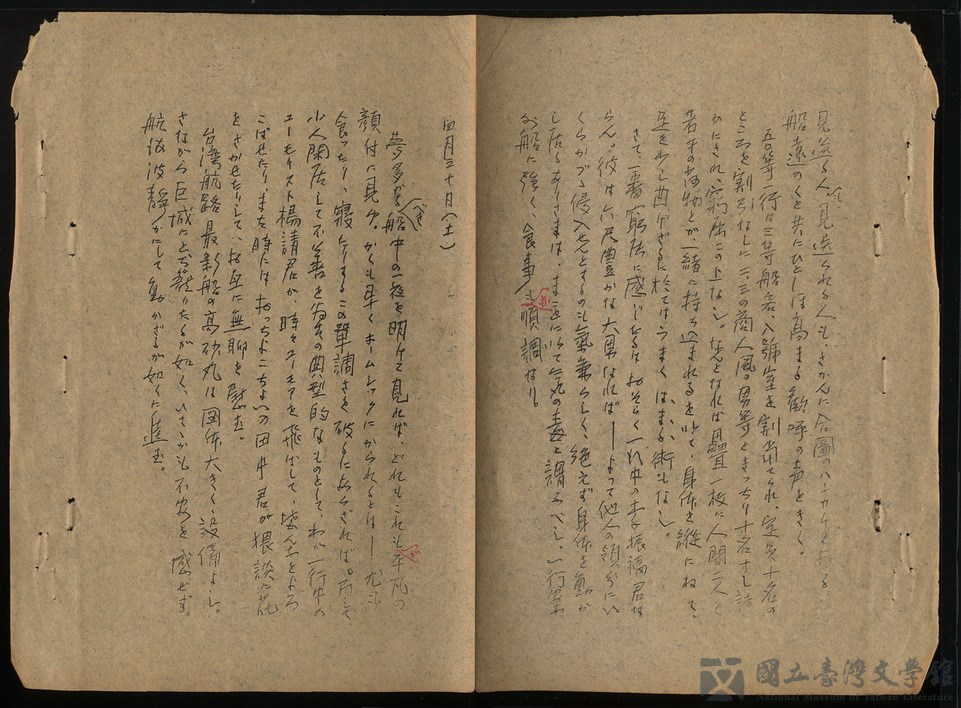 見送る人、見送られる人も、さかんに合圖のハンカチを振る
船遠のくと共にひとしほ高まる歡呼の声をきく。
吾等一行は三等船客、八號室を割当てられ、定員十名の
ところを割りなしに二三の商人風の男等ときっちり十名さし詰
めにされ、窮屈この上なし。なんとなれば疊一枚に人間二人と
若干の荷物とが一緒に持ち込まれるを以て、身体を縦にねて、
足を少し曲げざるに於てはうまくはまる術もなし。
さて一番窮屈に感じたるはおそらく一行中の李振福君な
らん。彼は六尺豊かな大男なれば——よって他人の領分にい
くらかづゝ侵入せんとするのも氣兼らしく、絶えず身体を動か
し居るありさまは、まことに以て氣の毒と謂ふべし。一行常
に船に強く、食事も順調なり。
四月三十日(土)
夢多かるべき船中の一夜を明けて見れば、どれもこれも平凡が
顔付に見ゆ。かくも早くホームシックにかられるとは——尤も
食ったり、寢たりするこの單調さを破るにあらざれば。而して
小人閑居して不善を為すの典型的なものとして、わが一行中の
ユーモリスト楊請君が、時々ユーモアを飛ばして、皆んなをよろ
こばせたり、また時にはおっちょこちょいの田中君が猥談に花
をさかせたりして、お互に無聊を慰む。
台湾航路最新船の高砂丸は図体大きく、設備よし。
さながら巨城にとぢ籠りたるが如く、いさゝかも不安を感ぜず。
航海波靜かにして動かざるが如くに進む。
國立臺灣文學館
National Museum of Taiwan Literature